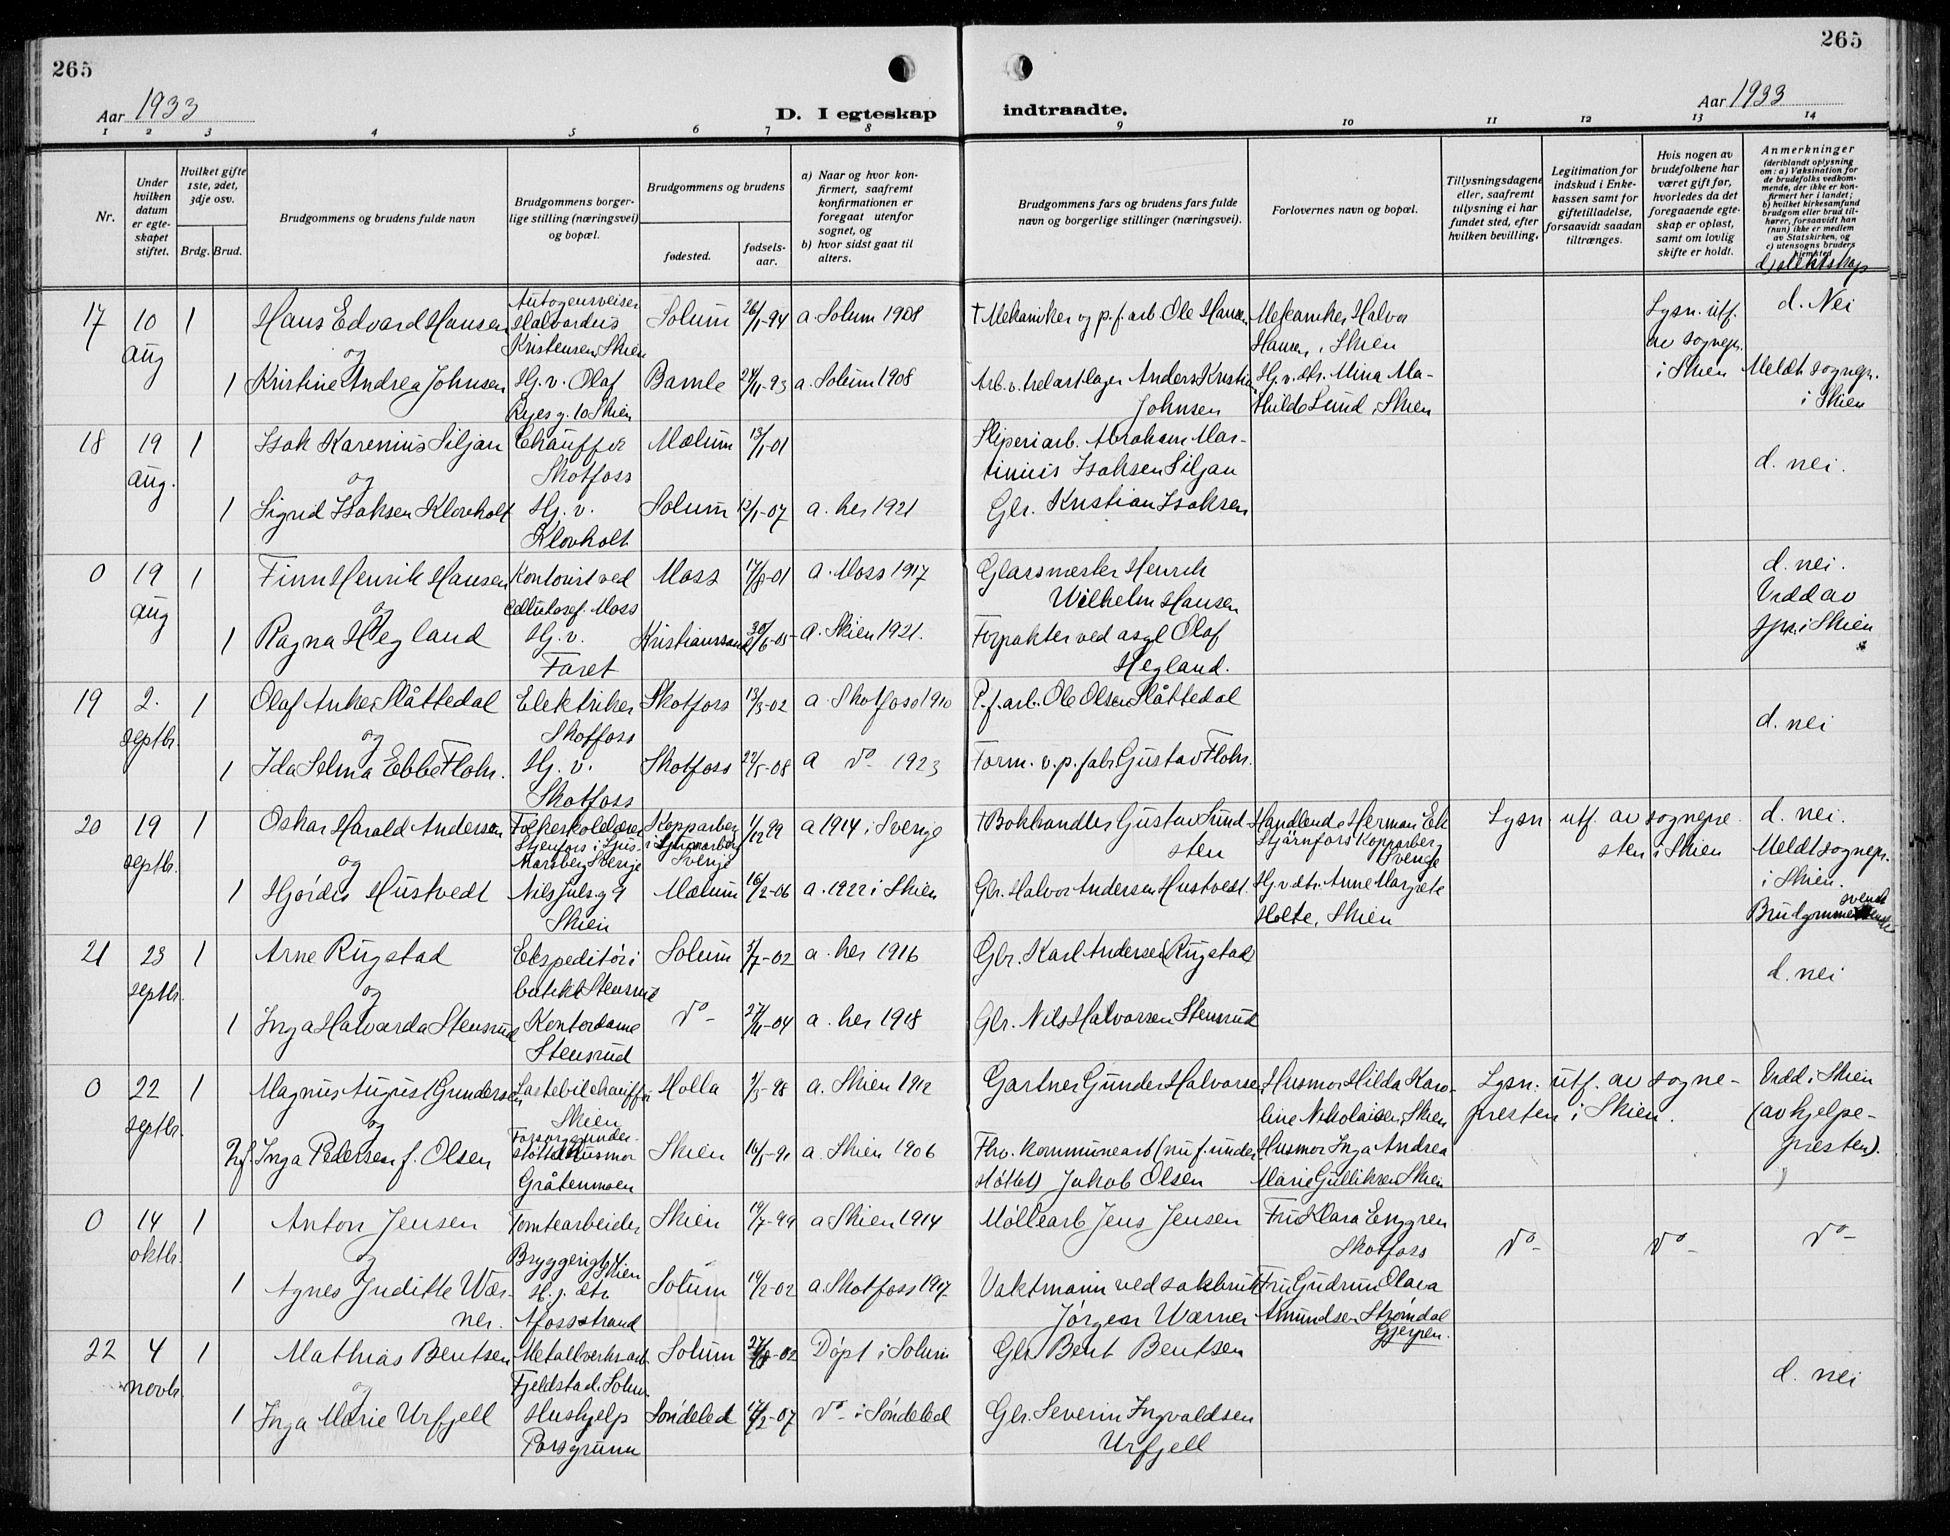 265
265
Aar 1933
D. I egteskap
indtraadte.
Aar 1933
1 2 3 4 5 6 7 8 9 10 11 12 13 14
Nr.
Under hvilken datum er egteskapet stiftet.
Hvilket gifte 1ste, 2det, 3dje osv.
Brdg. Brud.
Brudgommens og brudens fulde navn
Brudgommens borgerlige stilling (næringsvei) og bopæl.
Brudgommens og brudens
fødested.
fødselsaar.
a) Naar og hvor konfirmert, saafremt konfirmationen er foregaat utenfor sognet, og
b) hvor sidst gaat til alters.
Brudgommens fars og brudens fars fulde navn og borgerlige stillinger (næringsvei).
Forlovernes navn og bopæl.
Tillysningsdagene eller, saafremt tillysning ei har fundet sted, efter hvilken bevilling.
Legitimation for indskud i Enkekassen samt for giftetilladelse, forsaavidt saadan tiltrænges.
Hvis nogen av brudefolkene har været gift før, hvorledes da det foregaaende egteskap er opløst, samt om lovlig skifte er holdt.
Anmerkninger
(deriblandt oplysning om: a) Vaksination for de brudefolks vedkommende, der ikke er konfirmert her i landet; b) hvilket kirkesamfund brudgom eller brud tilhører, forsaavidt han (hun) ikke er medlem av Statskirken, og c) utensogns bruders hjemsted
d) slektskap
17 10 aug 1 Hans Edvard Hansen Autogensveiser Halvardus Kristensen, Skien Solum 26/1-94 a Solum 1908 † Mekaniker og p.f. arb. Ole Hansen Mekaniker Halvor Hansen, Skien Lysn. utf. av sognepr. i Skien d. Nei
og
1 Kristine Andrea Johnsen Hj. v. Olaf Ryes g. 10 Skien Bamle 24/11-93 a. Solum 1908 Arb. v. trelastlager Anders Kristian Johnsen Hj. v. dtr. Mina Mathilde Lund, Skien Meldt sognepr. i Skien
18 19 aug. 1 Isak Karenius Siljan Chauffør Skotfoss Mælum 13/1-01 Sliperiarb. Abraham Martinius Isaksen Siljan d. nei.
og
1 Sigrid Isaksen Klovholt Hj. v. Klovholt Solum 12/1-07 a. her 1921 Gbr. Kristian Isaksen
0 19 aug 1 Finn Henrik Hansen Kontorist ved cellulosef. Moss Moss 17/8-01 a. Moss 1917 Glasmester Henrik Wilhelm Hansen d. nei. Viedd av spr. i Skien
og
1 Ragna Hegland Hj. v. Faret Kristianssand 30/6-05 a. Skien 1921. Forpakter ved asyl Olaf Hegland.
19 2. septbr. 1 Olaf Anker Slåttedal Elektriker Skotfoss Skotfoss 13/3-02 a. Skotfoss 1910 P.f. arb. Ole Olsen Slåttedal d. nei
og
1 Ida Selma Ebbe Flohr. Hj. v. Skotfoss Skotfoss 22/5-08 a do 1923 Form. v. p. fabr Gustav Flohr.
20 19 septbr. 1 Oskar Harald Anderson Folkeskolelærer Stjernfors i Ljusnarsberg Sverige Kopparberg i Ljusnarsberg Sverige 1/12 99 a 1914 i Sverige † Bokhandler Gustav Sundsten Handlende Herman Ek Stjärnfors Kopparberg Sverige Lysn utf. av sognepresten i Skien d. nei. Meldt sognepr. i Skien.
og
1 Hjørdis Hustvedt Nils Juls g 9 Skien Mælum 16/2-06 a. 1922 i Skien Gbr. Halvor Andersen Hustvedt Hj. v. dtr. Anne Margrete Holte, Skien Brudgommen svensk
21 23 septbr. 1 Arne Rugstad Ekspeditør i butikk Stensrud Solum 3/7-02 a. her 1916 Gbr. Karl Andersen Rugstad d. nei
og
1 Inga Halvarda Stensrud Kontordame Stensrud do- 27/11-04 a. her 1918 Gbr. Nils Halvorsen Stensrud
0 22 septbr. 1 Magnus August Gundersen Lastebilchauffør Skien Holla 1/3-98 a. Skien 1912 Gartner Gunder Halvorsen Husmor Hilda Karoline Nikolaisen, Skien Lysn. utf. av sognepresten i Skien. Viedd i Skien (av hjelpepresten).
og
2nf. Inga Pedersen f. Olsen Forsorgsunderstøttet Husmor Gråtenmoen Skien 16/5-91 a. Skien 1906 Fhv. kommunearb (nu f. understøttet) Jakob Olsen Husmor Inga Andrea Marie Gulliksen Skien
0 14 oktbr. 1 Anton Jensen Tomtearbeider Bryggerigt 4 Skien Skien 19/7-99 a Skien 1914 Møllearb Jens Jensen Fru Klara Enggren Skotfoss do- do- do-
og
1 Agnes Judithe Wærner. H. j. dtr Afossstrand Solum 19/2-02 a. Skotfoss 1917 Vaktmann ved sakbruk Jørgen Wærner Fru Gudrun Olava Amundsen Strømdal Gjerpen.
22 4 novbr. 1 Mathias Bentsen Metallverksarb. Fjeldstad, Solum Solum 27/8-02 Døpt i Solum Gbr Bent Bentsen d. nei
og
1 Inga Marie Urfjell Hushjelp Porsgrunn Søndeled 17/2-07 do- i Søndeled Gbr. Severin Ingvaldsen Urfjell